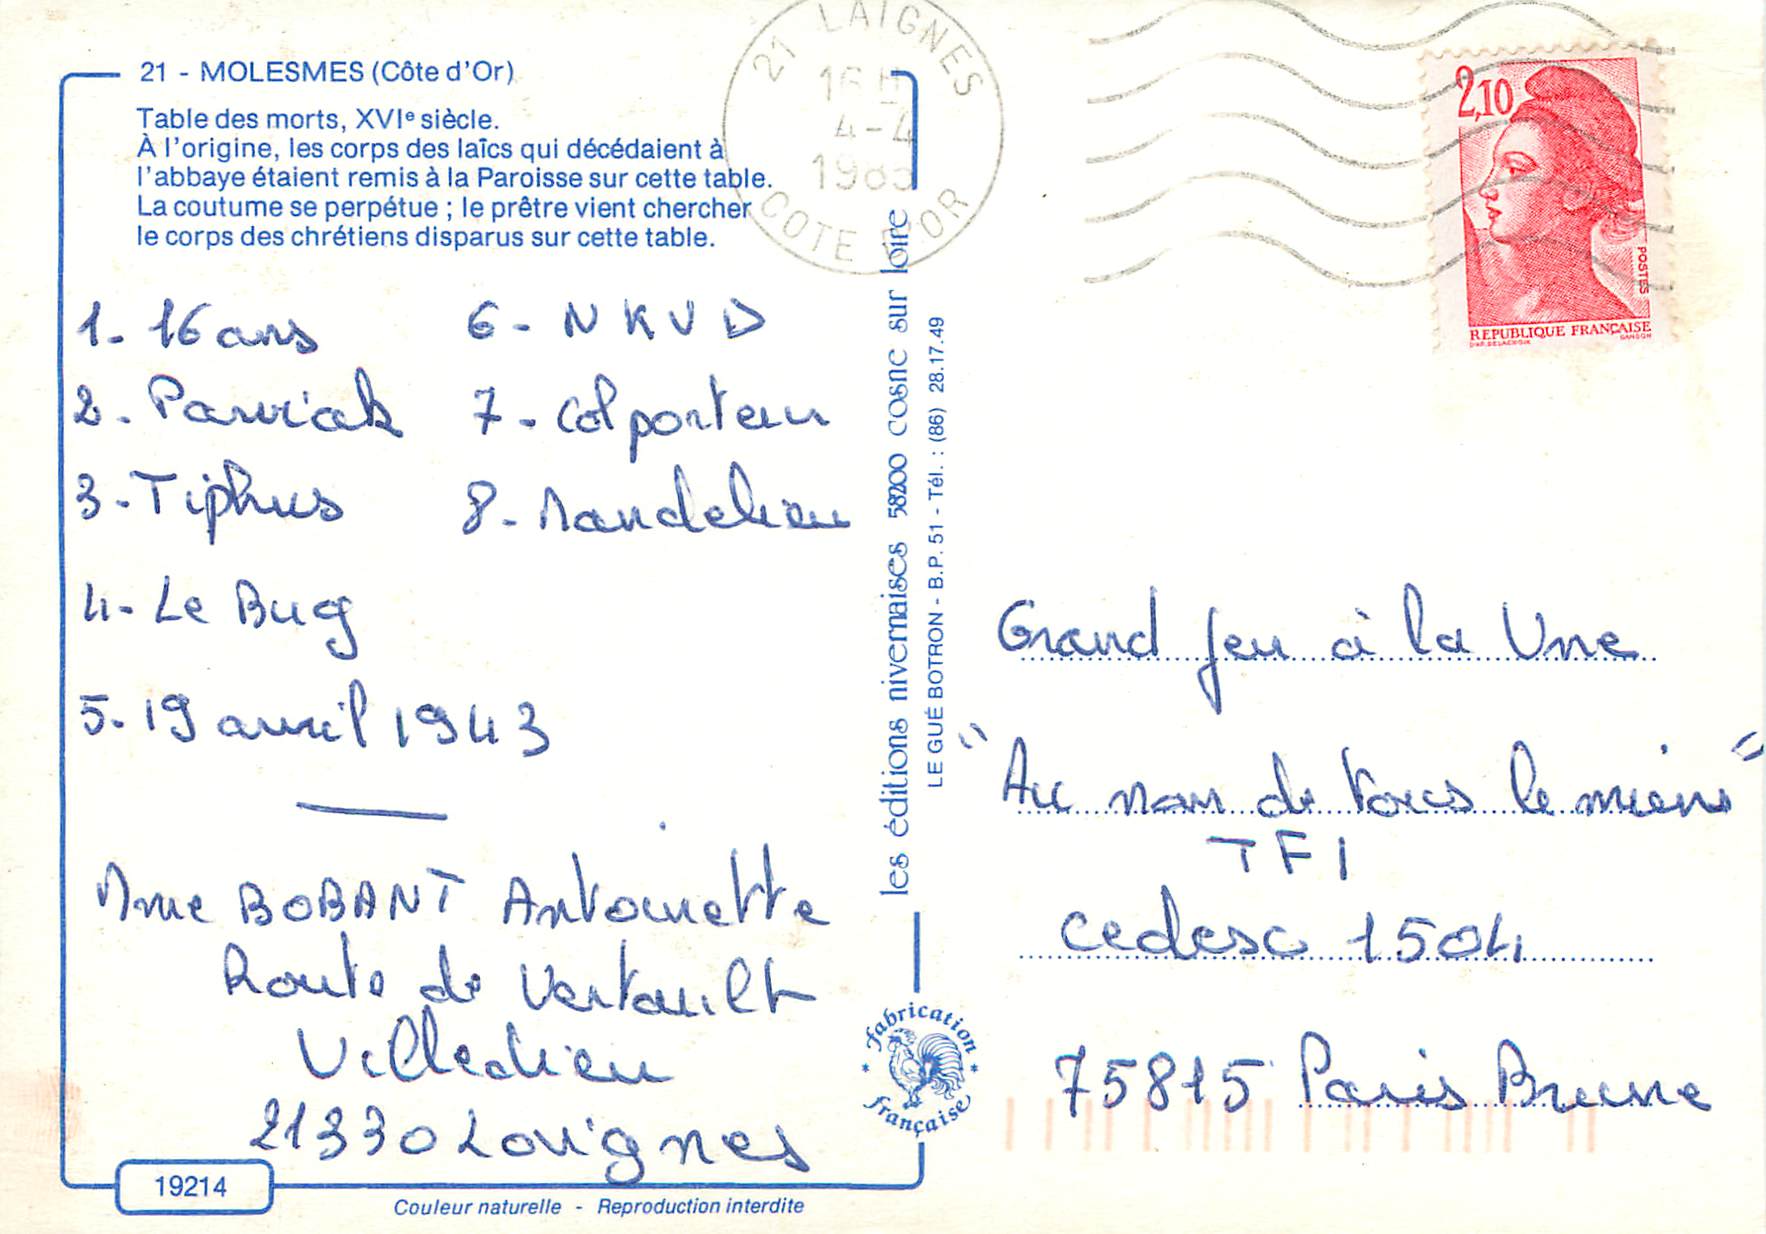 21 - MOLESMES (Côte d'Or)
Table des morts, XVIe siècle.
À l'origine, les corps des laïcs qui décédaient à
l'abbaye étaient remis à la Paroisse sur cette table.
La coutume se perpétue ; le prêtre vient chercher
le corps des chrétiens disparus sur cette table.
1- 16 ans
2- Pawiak
3- Tiphus
4- Le Bug
5- 19 avril 1943
6- NKVD
7- Colporteur
8- Mandelieu
Mme BOBANT Antoinette
Route de Vertault
Villedieu
21330 Laignes
19214
Couleur naturelle - Reproduction interdite
les éditions nivernaises 58200 cosne sur loire
LE GUÉ BOTRON - B.P. 51 - Tél. : (86) 28.17.49
fabrication
française
21 LAIGNES
16 H
4-4
COTE D'OR
2,10
POSTES
REPUBLIQUE FRANÇAISE
D'AP. DELACROIX
GANDON
Grand Jeu à la Une
"Au nom de tous le miens"
TF1
cedesc 1504
75815 Paris Brune